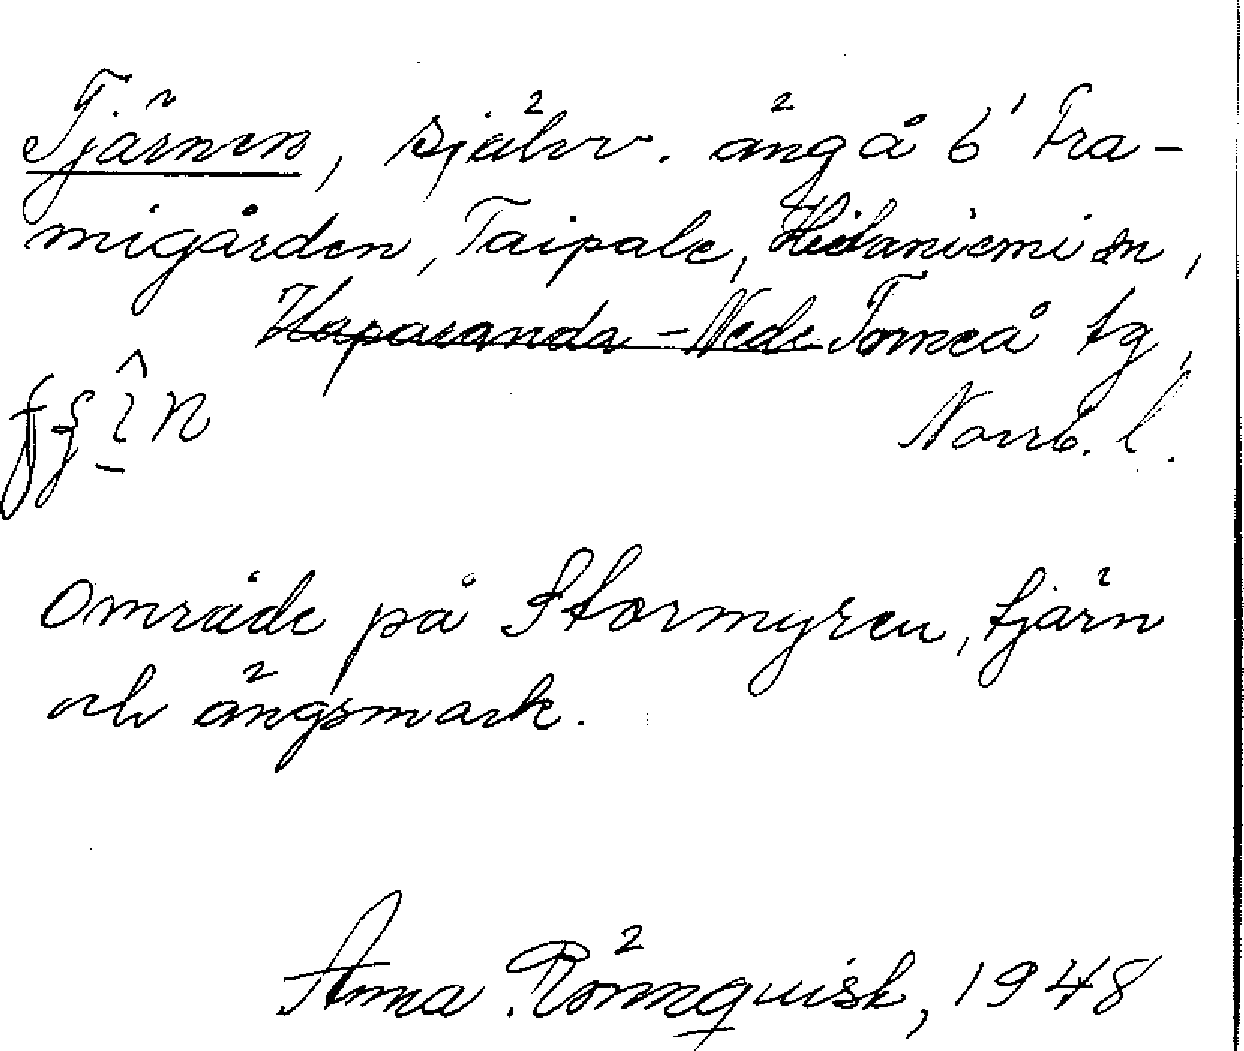 Tjärnen, självv. äng å 6¹ Fra-
migården, Taipale, Hietaniemi sn,
Haparanda - Nede Torneå tg,
Norrb. l.
Område på Stormyren, tjärn
och ängsmark.
Anna Rönnquist, 1948